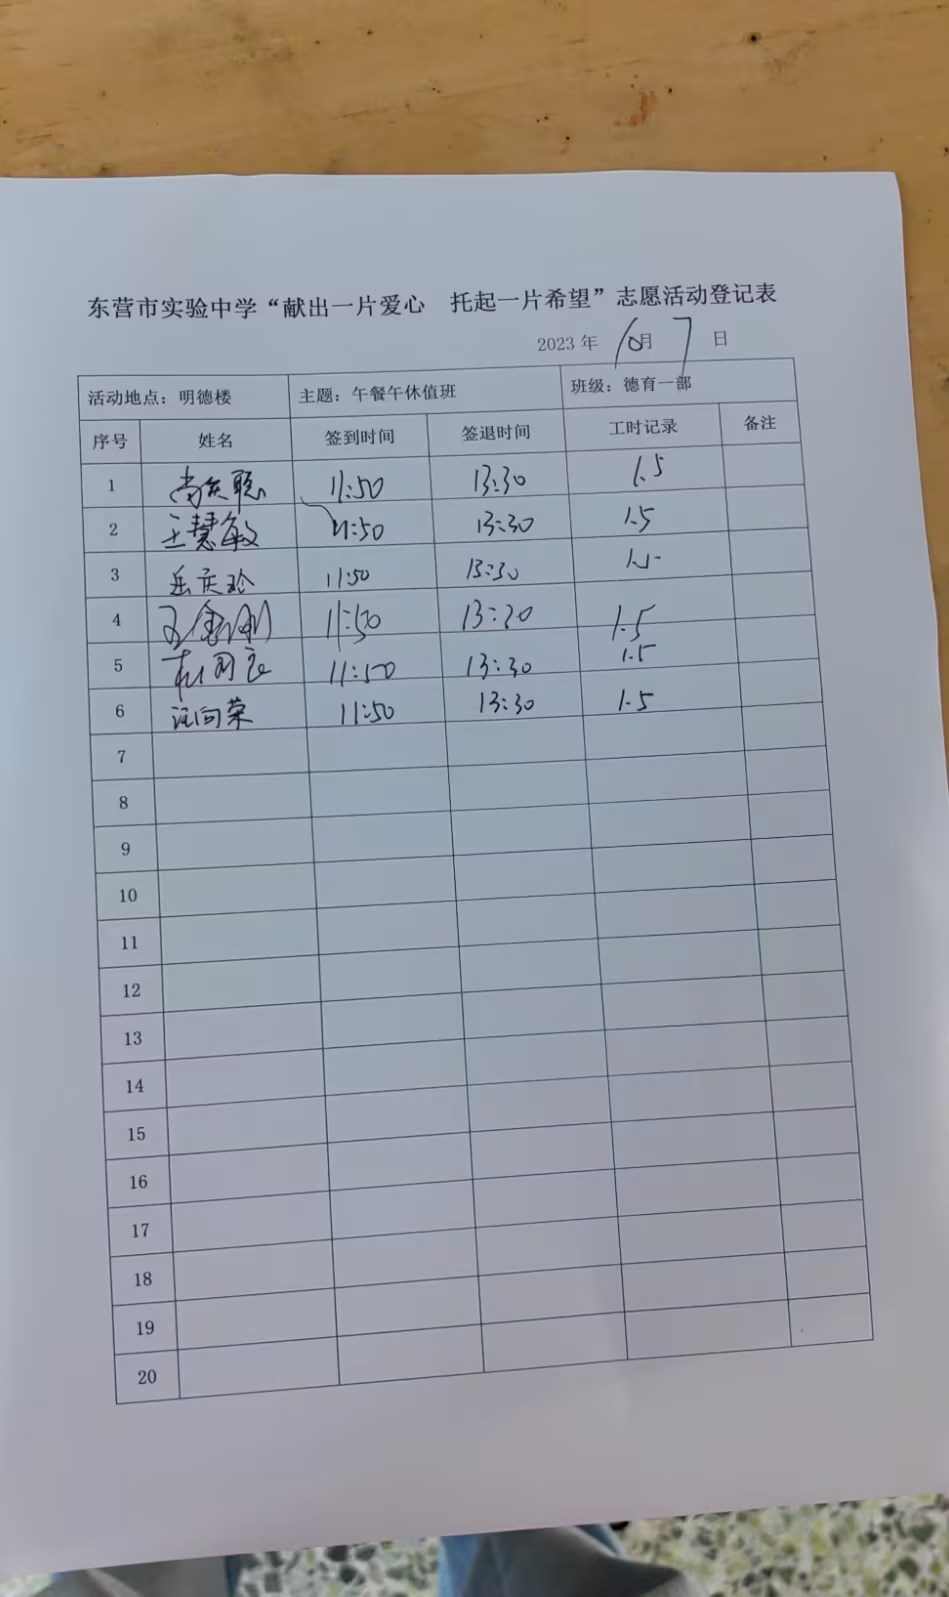 东营市实验中学“献出一片爱心 托起一片希望”志愿活动登记表
2023 年 10月 7 日
活动地点：明德楼 主题：午餐午休值班 班级：德育一部
序号 姓名 签到时间 签退时间 工时记录 备注
1 尚庆聪 11:50 13:30 1.5
2 王慧敏 11:50 13:30 1.5
3 岳庆玲 11:50 13:30 1.5
4 11:50 13:30 1.5
5 11:50 13:30 1.5
6 汪向荣 11:50 13:30 1.5
7
8
9
10
11
12
13
14
15
16
17
18
19
20